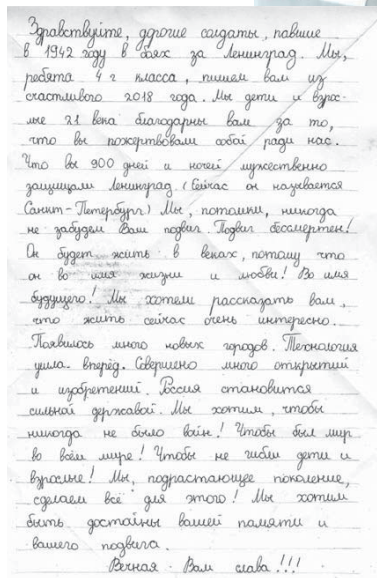 Здравствуйте, дорогие солдаты, павшие
в 1942 году в боях за Ленинград. Мы,
ребята 4 г класса, пишем вам из
счастливого 2018 года. Мы дети и взрос-
лые 21 века благодарны вам за то,
что вы пожертвовали собой ради нас.
Что вы 900 дней и ночей мужественно
защищали Ленинград. (Сейчас он называется
Санкт-Петербург) Мы, потомки, никогда
не забудем Вам подвиг. Подвиг бессмертен!
Он будет жить в веках, потому что
он во имя жизни и любви! Во имя
будущего! Мы хотем рассказать вам,
что жить сейчас очень интересно.
Появилось много новых городов. Технология
ушла вперёд. Совершено много открытий
и изобретений. Россия становится
сильной державой. Мы хотим, чтобы
никогда не было войн! Чтобы был мир
во всём мире! Чтобы не гибли дети и
взрослые! Мы, подрастающее поколение,
сделаем всё для этого! Мы хотим
быть достойны вашей памяти и
вашего подвига.
Вечная Вам слава!!!